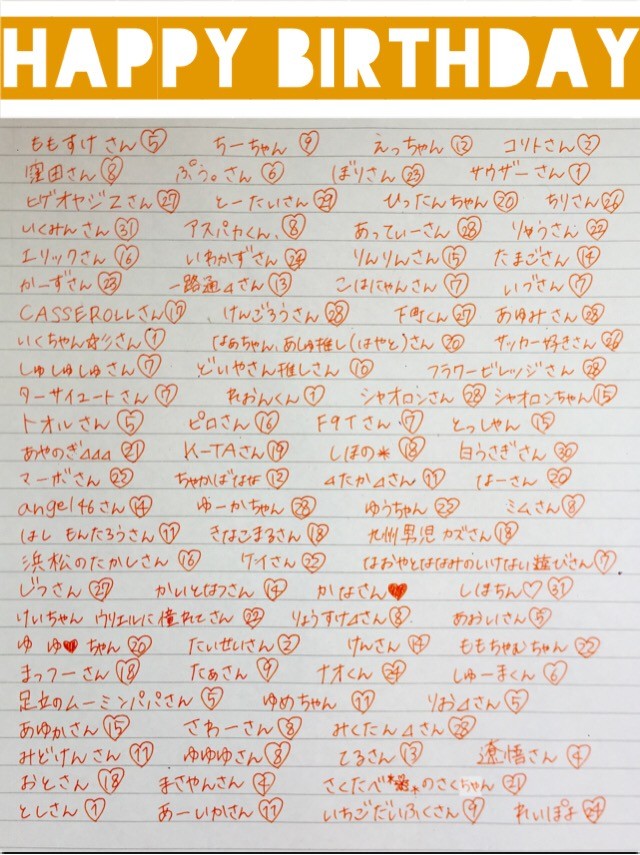 HAPPY BIRTHDAY
ももすけさん⑤ ちーちゃん⑨ えっちゃん⑫ コリトさん②
窪田さん⑧ ぷぅ。さん⑥ ぼりさん㉓ サウザーさん①
ヒゲオヤジZさん㉗ とーたいさん㉙ ひったんちゃん⑳ ちりさん
いくみんさん㉛ アスパカくん、⑧ あってぃーさん㉘ りゅうさん㉒
エリックさん⑯ いわかずさん㉔ りんりんさん⑮ たまごさん⑭
かーずさん㉓ 一路通⊿さん⑬ こはにゃんさん⑰ いづさん⑦
CASSEROLLさん⑲ けんごろうさん㉘ 下町くん㉗ あゆみさん㉘
いくちゃん☆彡さん① なぁちゃん、あしゅ推し(はやと)さん⑳ サッカー好きさん㉖
しゅしゅしゅさん⑦ どいやさん推しさん⑩ フラワービレッジさん㉘
ターサイユートさん⑦ れおんくん① シャオロンさん㉘ シャオロンちゃん⑮
トオルさん⑤ ピロさん⑯ F9Tさん⑦ とっしゃん⑮
あやのぎ⊿⊿⊿㉑ K-TAさん⑲ しほの*⑱ 白うさぎさん㉚
マーボさん㉒ ちゃかばなな⑫ ⊿たか⊿さん⑪ はーさん⑳
angel46さん⑭ ゆーかちゃん㉘ ゆうちゃん㉒ ミムさん⑧
はし もんたろうさん⑪ きなこまるさん⑱ 九州男児カズさん⑱
浜松のたかしさん⑯ ケイさん㉒ なおやとななみのいけない遊びさん⑦
じつさん㉗ かいとはつさん⑭ かなさん♥ しほちん♡㉛
けいちゃん ウリエルに憧れてさん㉓ りょうすけ⊿さん⑧ あおいさん⑤
ゆゆ♥ちゃん⑳ たいせいさん② けんさん⑭ ももちゃむちゃん㉒
まっつーさん⑱ たぁさん⑨ ナオくん㉔ しゅーまくん⑥
足立のムーミンパパさん⑤ ゆめちゃん⑪ りお⊿さん⑤
あゆかさん⑮ さわーさん⑧ みくたん⊿さん㉘
みどけんさん⑪ ゆゆゆさん⑧ てるさん⑬ 遼悟さん④
おとさん⑱ まさやんさん④ さくたべ*のさくちゃん㉑
としさん① あーいかさん⑰ いちごだいふくさん⑨ れいぽよ㉔